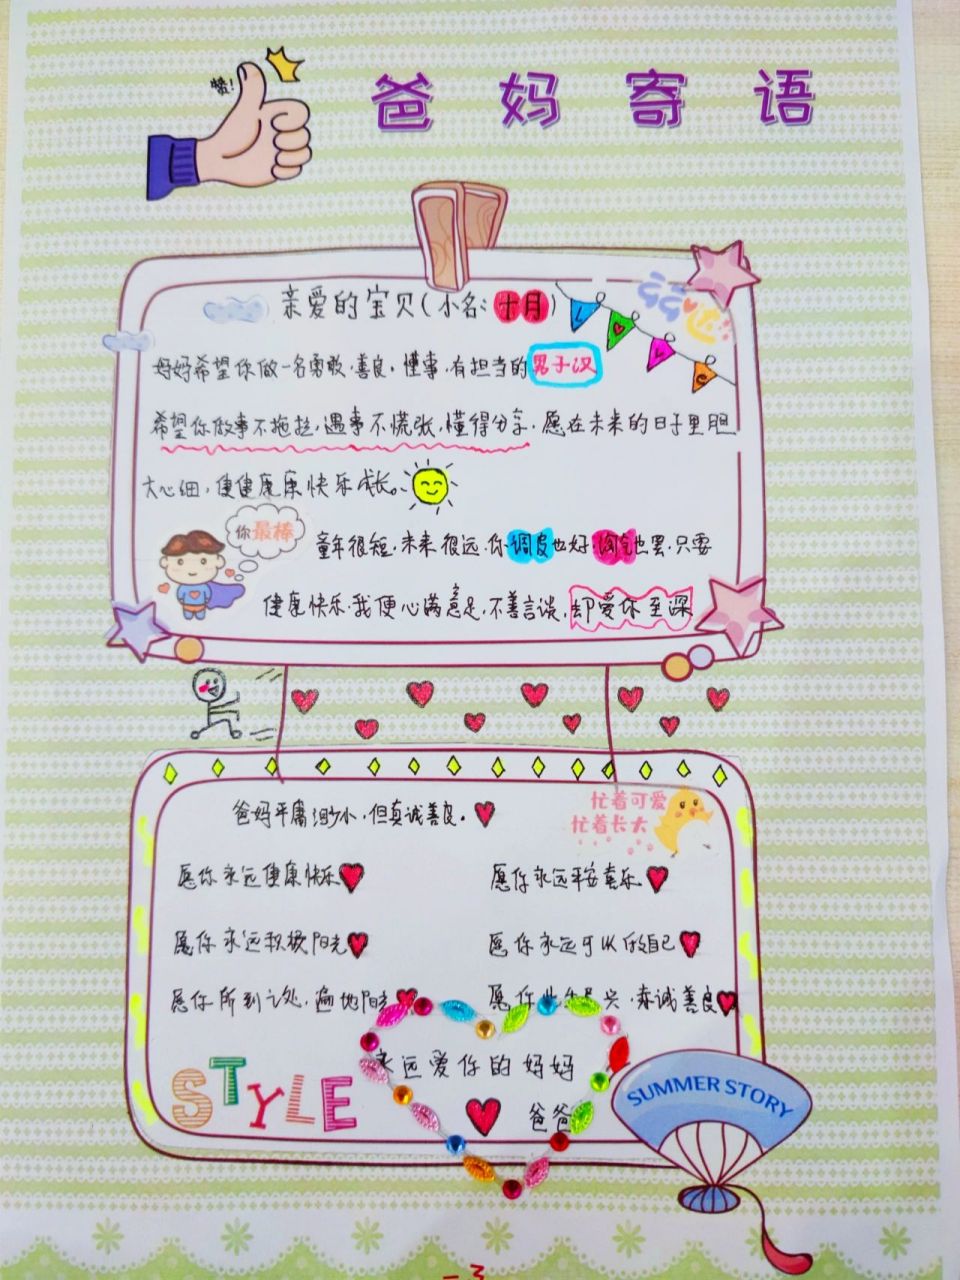 赞!
爸妈寄语
亲爱的宝贝(小名:十月)
LOVE
妈妈希望你做一名勇敢.善良.懂事.有担当的男子汉
希望你做事不拖拉,遇事不慌张,懂得分享.愿在未来的日子里胆
大心细,健健康康快乐成长。
你最棒
童年很短,未来很远.你调皮也好淘气也罢.只要
健康快乐.我便心满意足,不善言谈,却爱你至深
忙着可爱
忙着长大
爸妈平庸渺小,但真诚善良。
愿你永远健康快乐
愿你永远平安喜乐
愿你永远积极阳光
愿你永远可以做自己
愿你所到之处,遍地阳光
愿你 真诚善良
永远爱你的妈妈
爸爸
STYLE
SUMMER STORY